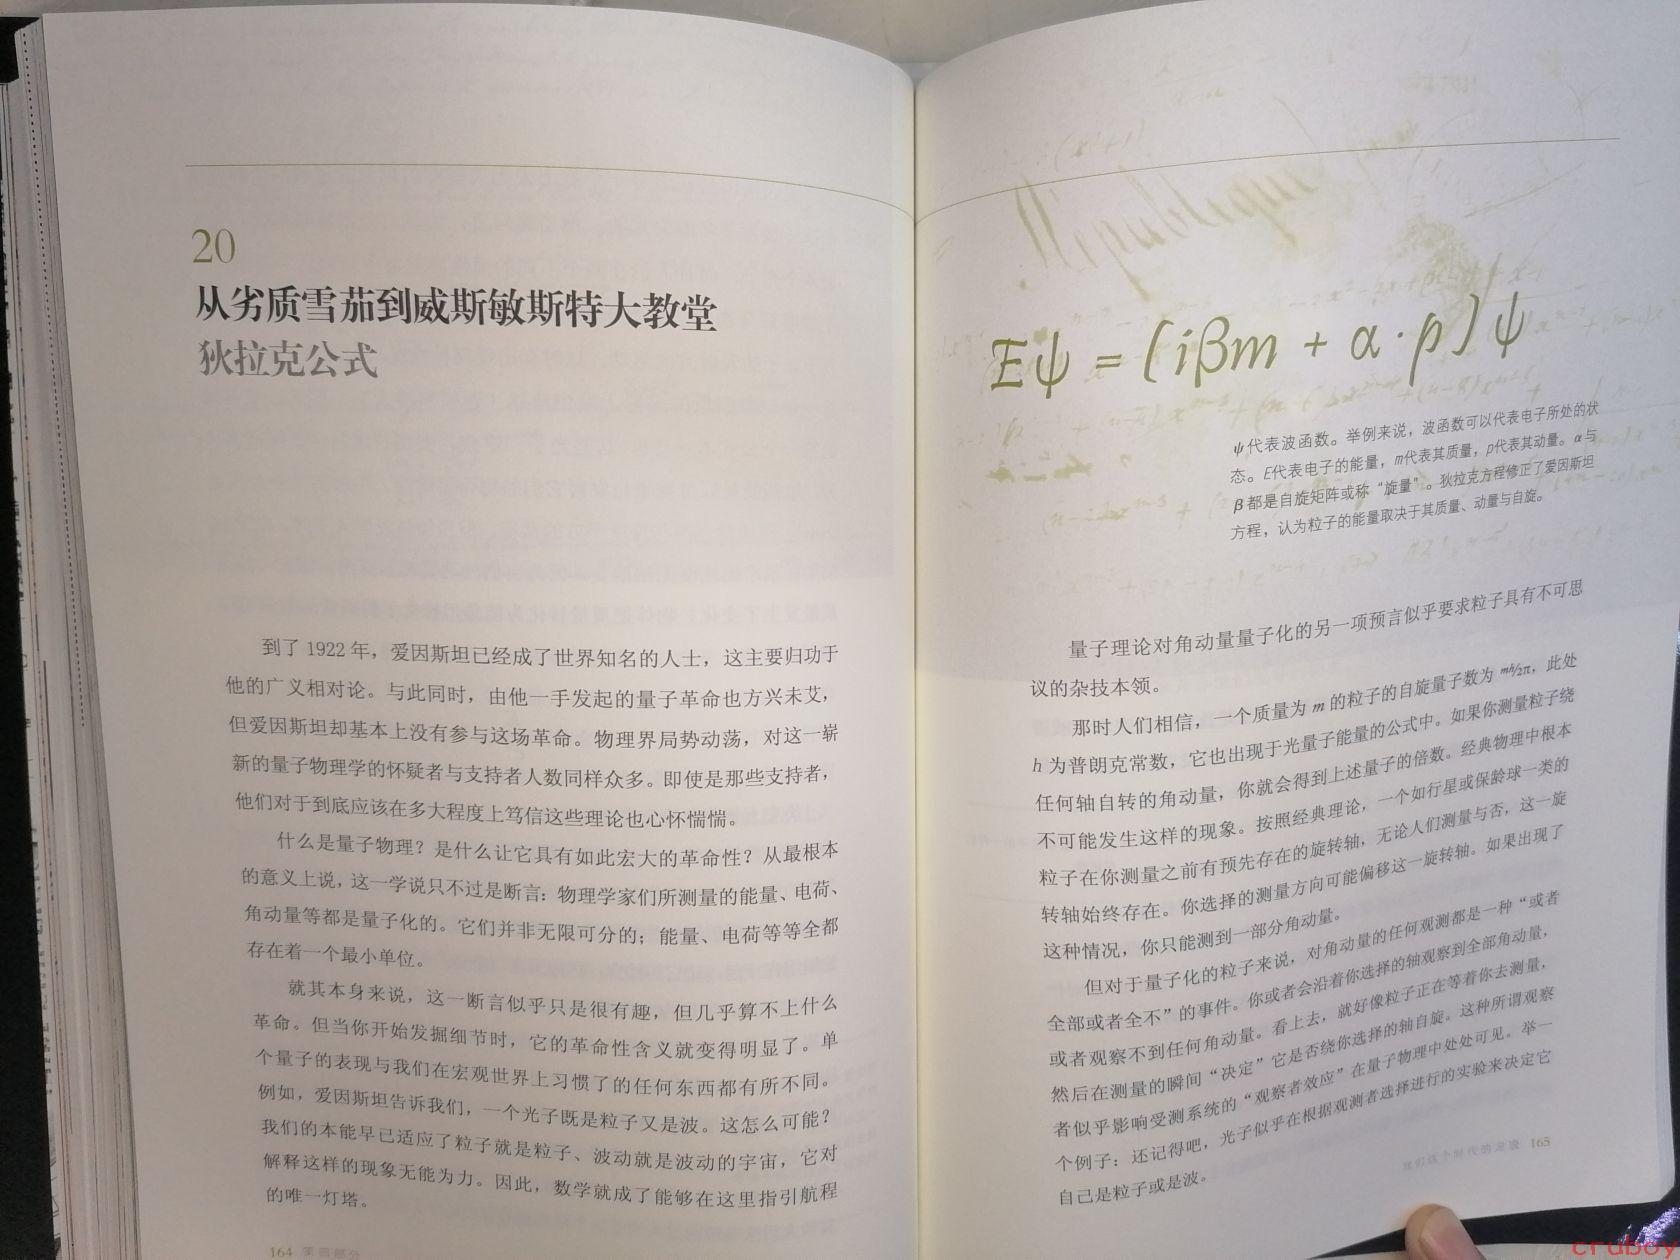 20
从劣质雪茄到威斯敏斯特大教堂
狄拉克公式
到了 1922 年，爱因斯坦已经成了世界知名的人士，这主要归功于
他的广义相对论。与此同时，由他一手发起的量子革命也方兴未艾，
但爱因斯坦却基本上没有参与这场革命。物理界局势动荡，对这一崭
新的量子物理学的怀疑者与支持者人数同样众多。即使是那些支持者，
他们对于到底应该在多大程度上笃信这些理论也心怀惴惴。
什么是量子物理？是什么让它具有如此宏大的革命性？从最根本
的意义上说，这一学说只不过是断言：物理学家们所测量的能量、电荷、
角动量等都是量子化的。它们并非无限可分的；能量、电荷等等全都
存在着一个最小单位。
就其本身来说，这一断言似乎只是很有趣，但几乎算不上什么
革命。但当你开始发掘细节时，它的革命性含义就变得明显了。单
个量子的表现与我们在宏观世界上习惯了的任何东西都有所不同。
例如，爱因斯坦告诉我们，一个光子既是粒子又是波。这怎么可能？
我们的本能早已适应了粒子就是粒子、波动就是波动的宇宙，它对
解释这样的现象无能为力。因此，数学就成了能够在这里指引航程
的唯一灯塔。
164 第四部分
Eψ = (iβm + α·p)ψ
ψ代表波函数。举例来说，波函数可以代表电子所处的状
态。E代表电子的能量，m代表其质量，p代表其动量。α与
β都是自旋矩阵或称“旋量”。狄拉克方程修正了爱因斯坦
方程，认为粒子的能量取决于其质量、动量与自旋。
量子理论对角动量量子化的另一项预言似乎要求粒子具有不可思
议的杂技本领。
那时人们相信，一个质量为 m 的粒子的自旋量子数为 mh/2π，此处
h 为普朗克常数，它也出现于光量子能量的公式中。如果你测量粒子绕
任何轴自转的角动量，你就会得到上述量子的倍数。经典物理中根本
不可能发生这样的现象。按照经典理论，一个如行星或保龄球一类的
粒子在你测量之前有预先存在的旋转轴，无论人们测量与否，这一旋
转轴始终存在。你选择的测量方向可能偏移这一旋转轴。如果出现了
这种情况，你只能测到一部分角动量。
但对于量子化的粒子来说，对角动量的任何观测都是一种“或者
全部或者全不”的事件。你或者会沿着你选择的轴观察到全部角动量，
或者观察不到任何角动量。看上去，就好像粒子正在等着你去测量，
然后在测量的瞬间“决定”它是否绕你选择的轴自旋。这种所谓观察
者似乎影响受测系统的“观察者效应”在量子物理中处处可见。举一
个例子：还记得吧，光子似乎在根据观测者选择进行的实验来决定它
自己是粒子或是波。
我们这个时代的走境 165
cruboy